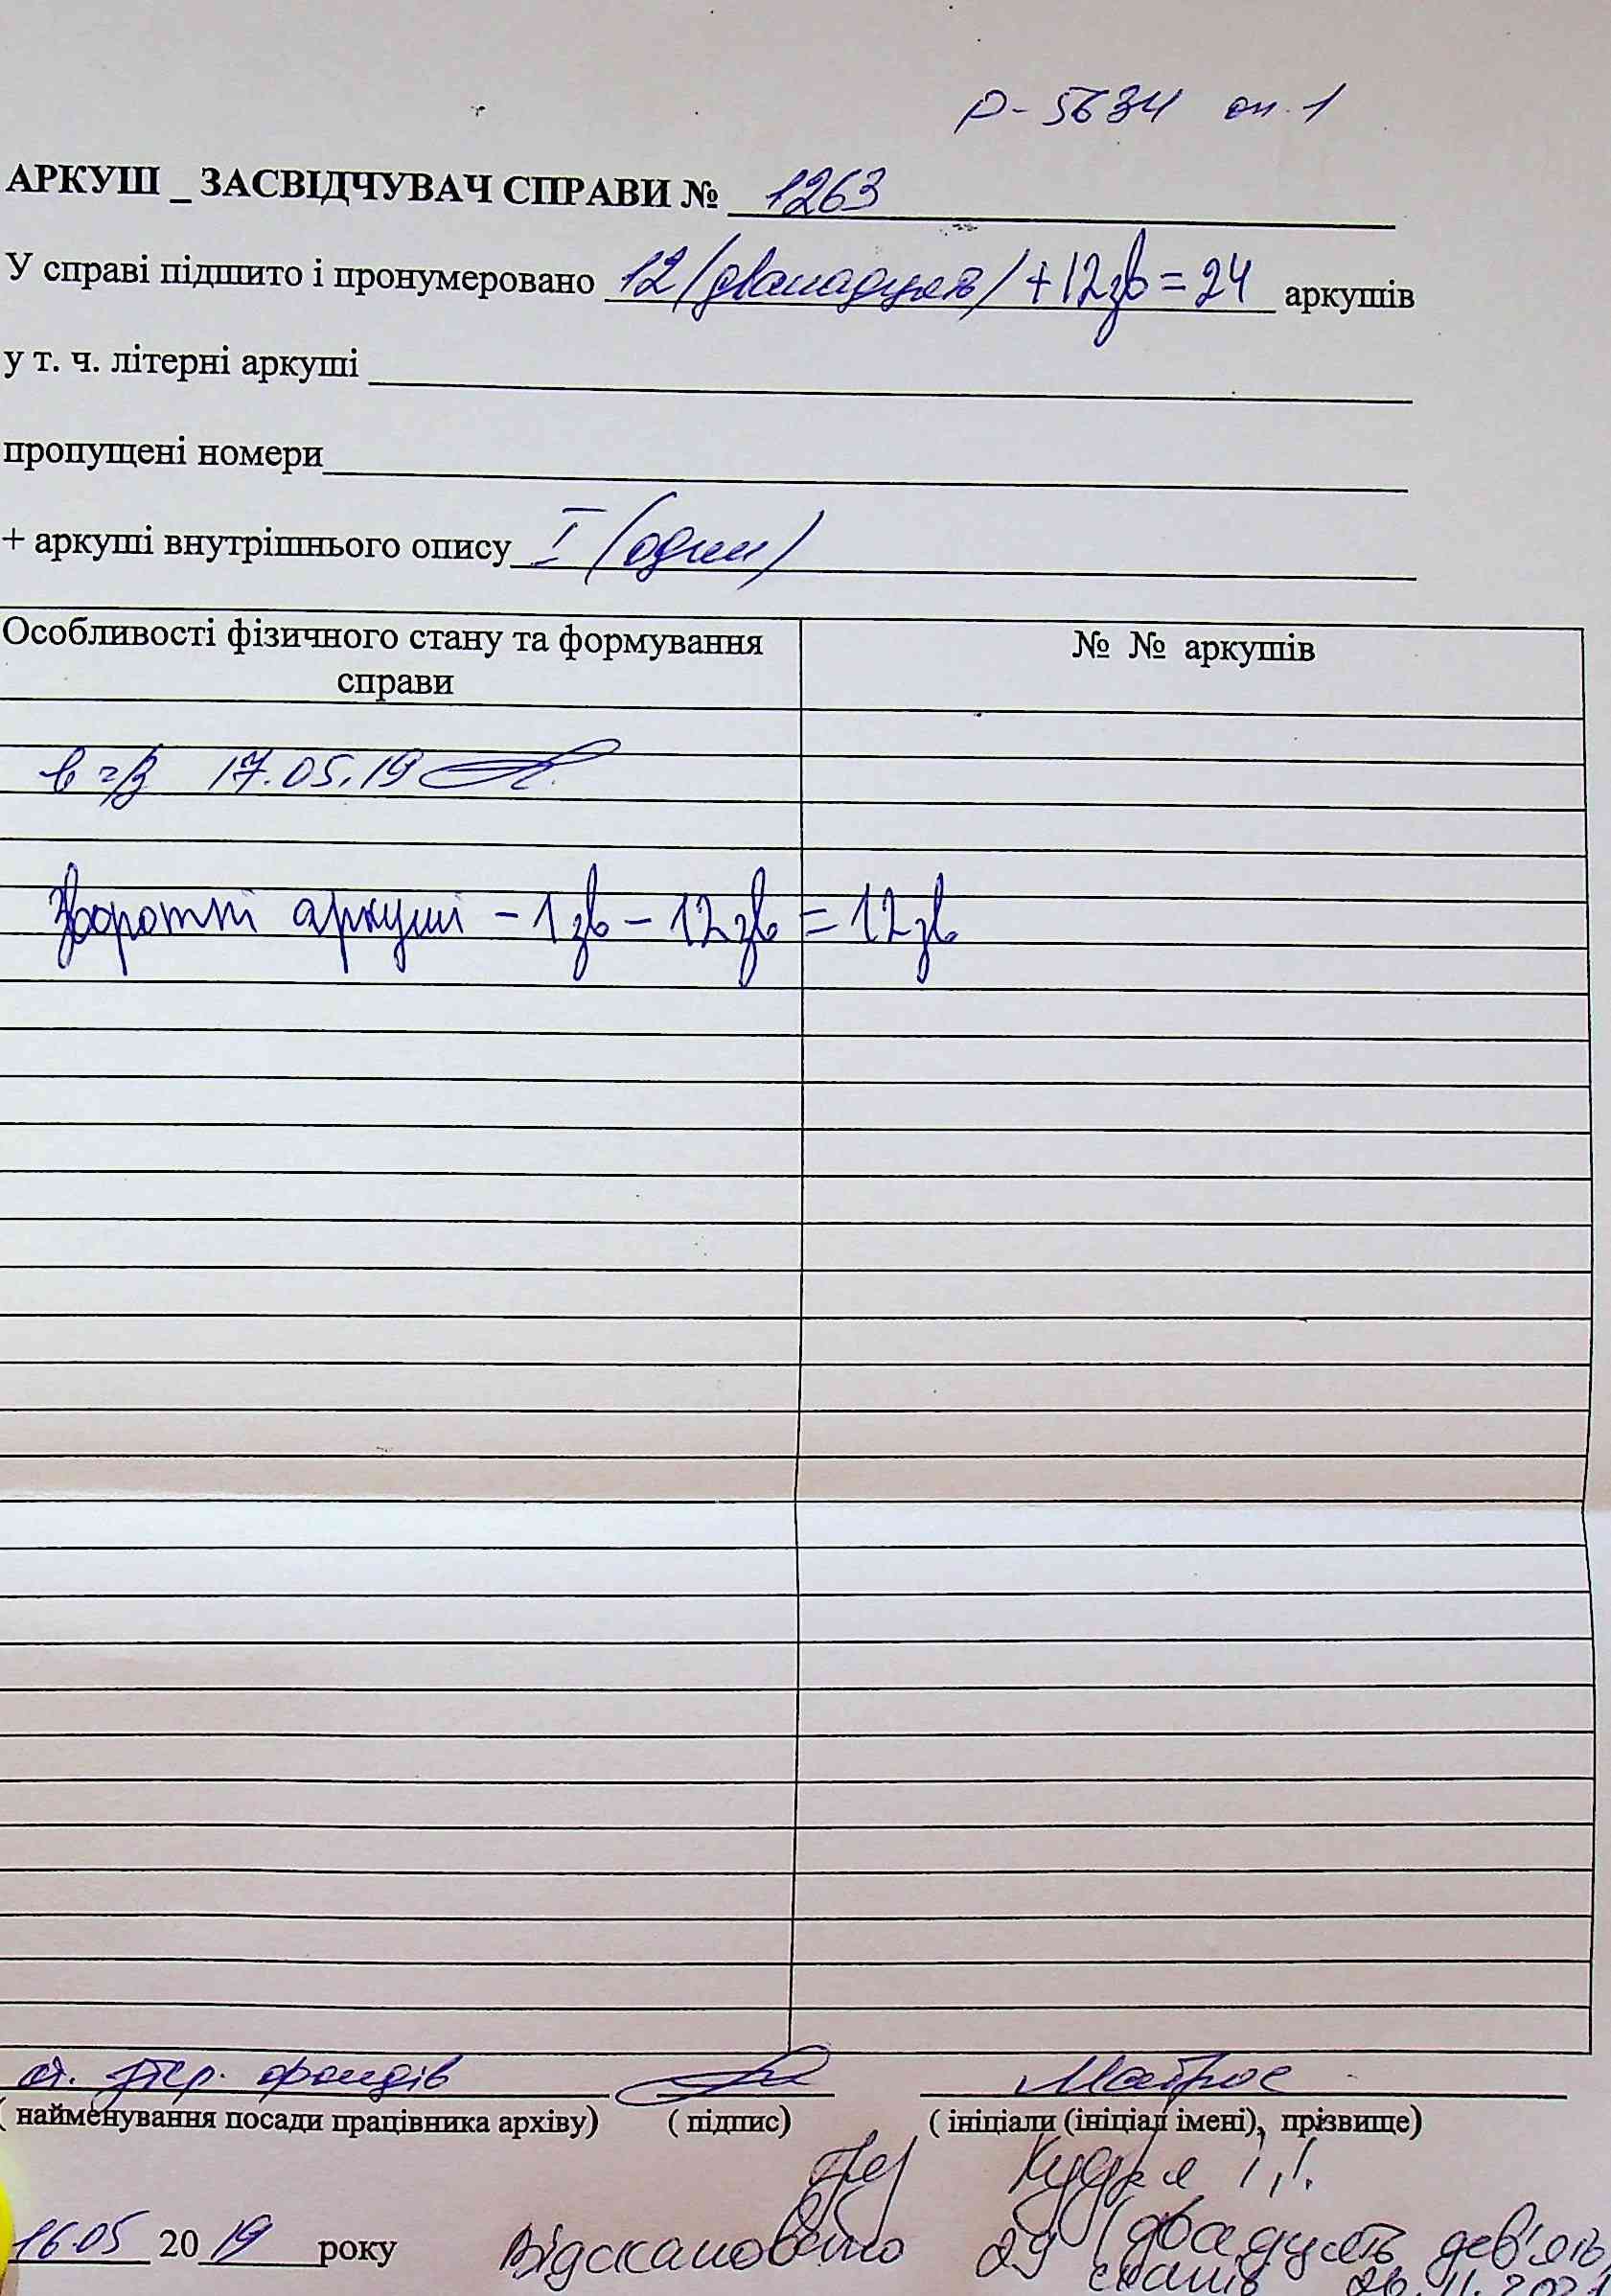 Р-5634 оп. 1
АРКУШ _ ЗАСВІДЧУВАЧ СПРАВИ № 1263
У справі підшито і пронумеровано 12 /дванадцять/ +12зв = 24 аркушів
у т. ч. літерні аркуші
пропущені номери
+ аркуші внутрішнього опису I /один/
Особливості фізичного стану та формування
справи
№ № аркушів
17.05.19
Зворотні аркуші - 1зв - 12зв = 12зв
ст. фондів
( найменування посади працівника архіву) ( підпис) ( ініціали (ініціал імені), прізвище)
16.05 20 19 року
Відскановано 29 (двадцять дев'ять
сканів 26.11.2021